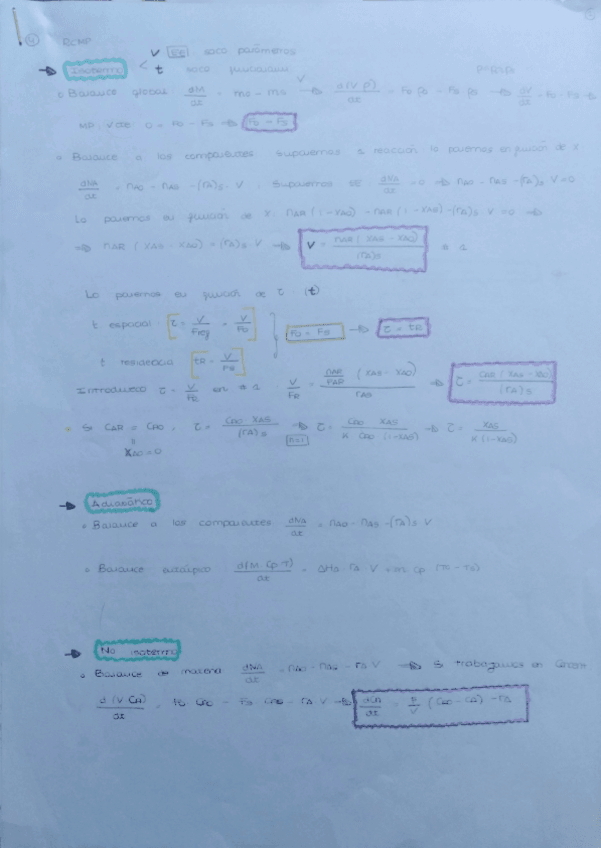 ④ RCMP
→ Isotermo < V [SE] saco parámetros
t saco funcionario
▫ Balance global dM/dt = mo - ms → d(V ρ)/dt = Fo ρo - Fs ρs → dV/dt = Fo - Fs
MP, V cte 0 = Fo - Fs → Fo = Fs
▫ Balance a los componentes Suponemos 1 reacción lo ponemos en función de
dNA/dt = nAO - nAS - (rA)s · V . Suponemos SE dNA/dt = 0 → nAO - nAS - (rA)s V = 0
Lo ponemos en función de X: nAR (1 - XAO) - nAR (1 - XAS) - (rA)s V = 0 →
⇒ nAR (XAS - XAO) = (rA)s · V → V = nAR (XAS - XAO)/(rA)s * 1
Lo ponemos en función de τ (t)
t espacial [τ = V/Fref = V/Fo] } Fo = Fs → τ = tR
t residencia [tR = V/Fs]
Introduzco τ = V/FR en * 1 V/FR = nAR/FAR (XAS - XAO)/rAS → τ = CAR (XAS - XAO)/(rA)s
▫ Si CAR = CAO, τ = CAO · XAS/(rA)s → n=1 τ = CAO XAS/K CAO (1-XAS) → τ = XAS/K(1-XAS)
XAO = 0
→ Adiabático
▫ Balance a los componentes dNA/dt = nAO - nAS - (rA)s V
▫ Balance d(M Cp T)/dt = ΔHR rA V + m Cp (To - Ts)
→ No isotermo
▫ Balance de materia dNA/dt = nAO - nAS - rA V → Si trabajamos en
d(V CA)/dt = Fo CAO - Fs CAS - rA V → dCA/dt = F/V (CAO - CA) - rA